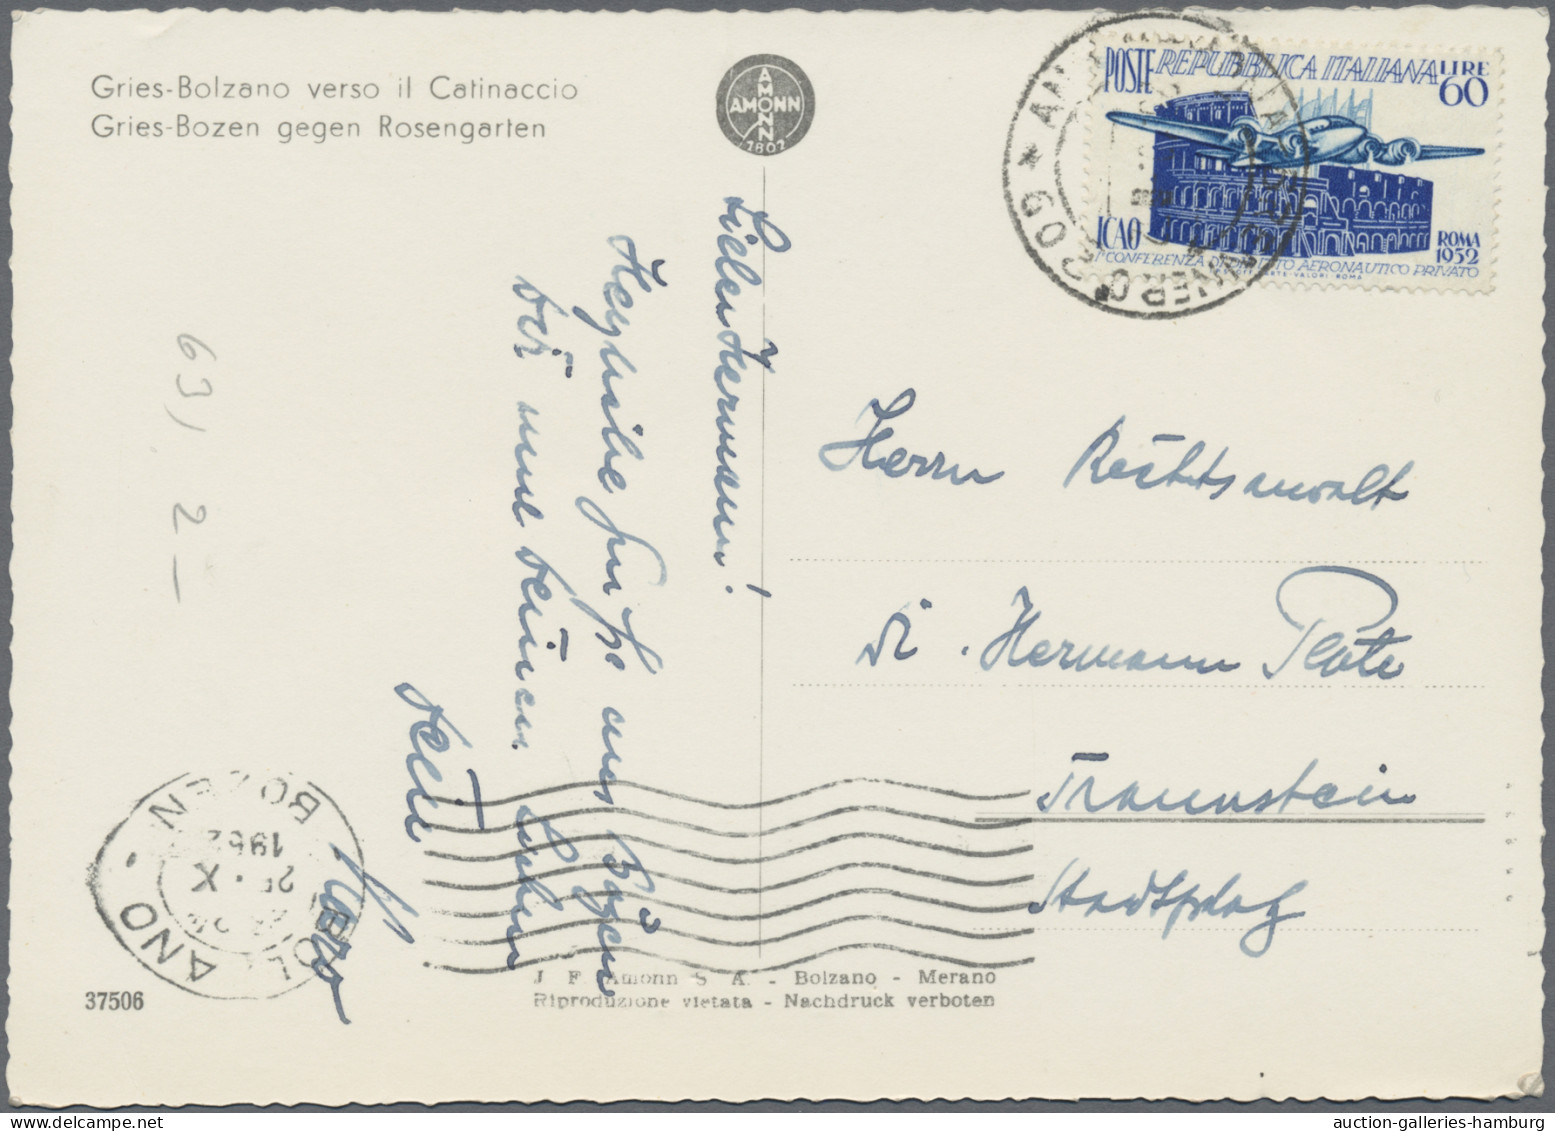 Gries-Bolzano verso il Catinaccio
Gries-Bozen gegen Rosengarten
AMONN
AMONN
1802
POSTE REPUBBLICA ITALIANA LIRE
60
ICAO
ROMA
1952
1ª CONFERENZA DI DIRITTO AERONAUTICO PRIVATO
BRENNERO 209 *
Lieber Hermann!
Herzliche Grüße aus Bozen
Dir und Deinen Lieben
Dein
Hans
Herrn Rechtsanwalt
Dr. Hermann Plote
Traunstein
Stadtplatz
63/ 2-
BOLZANO - BOZEN
25.X
1952
J. F. Amonn S. A. - Bolzano - Merano
Riproduzione vietata - Nachdruck verboten
37506
auction-galleries-hamburg